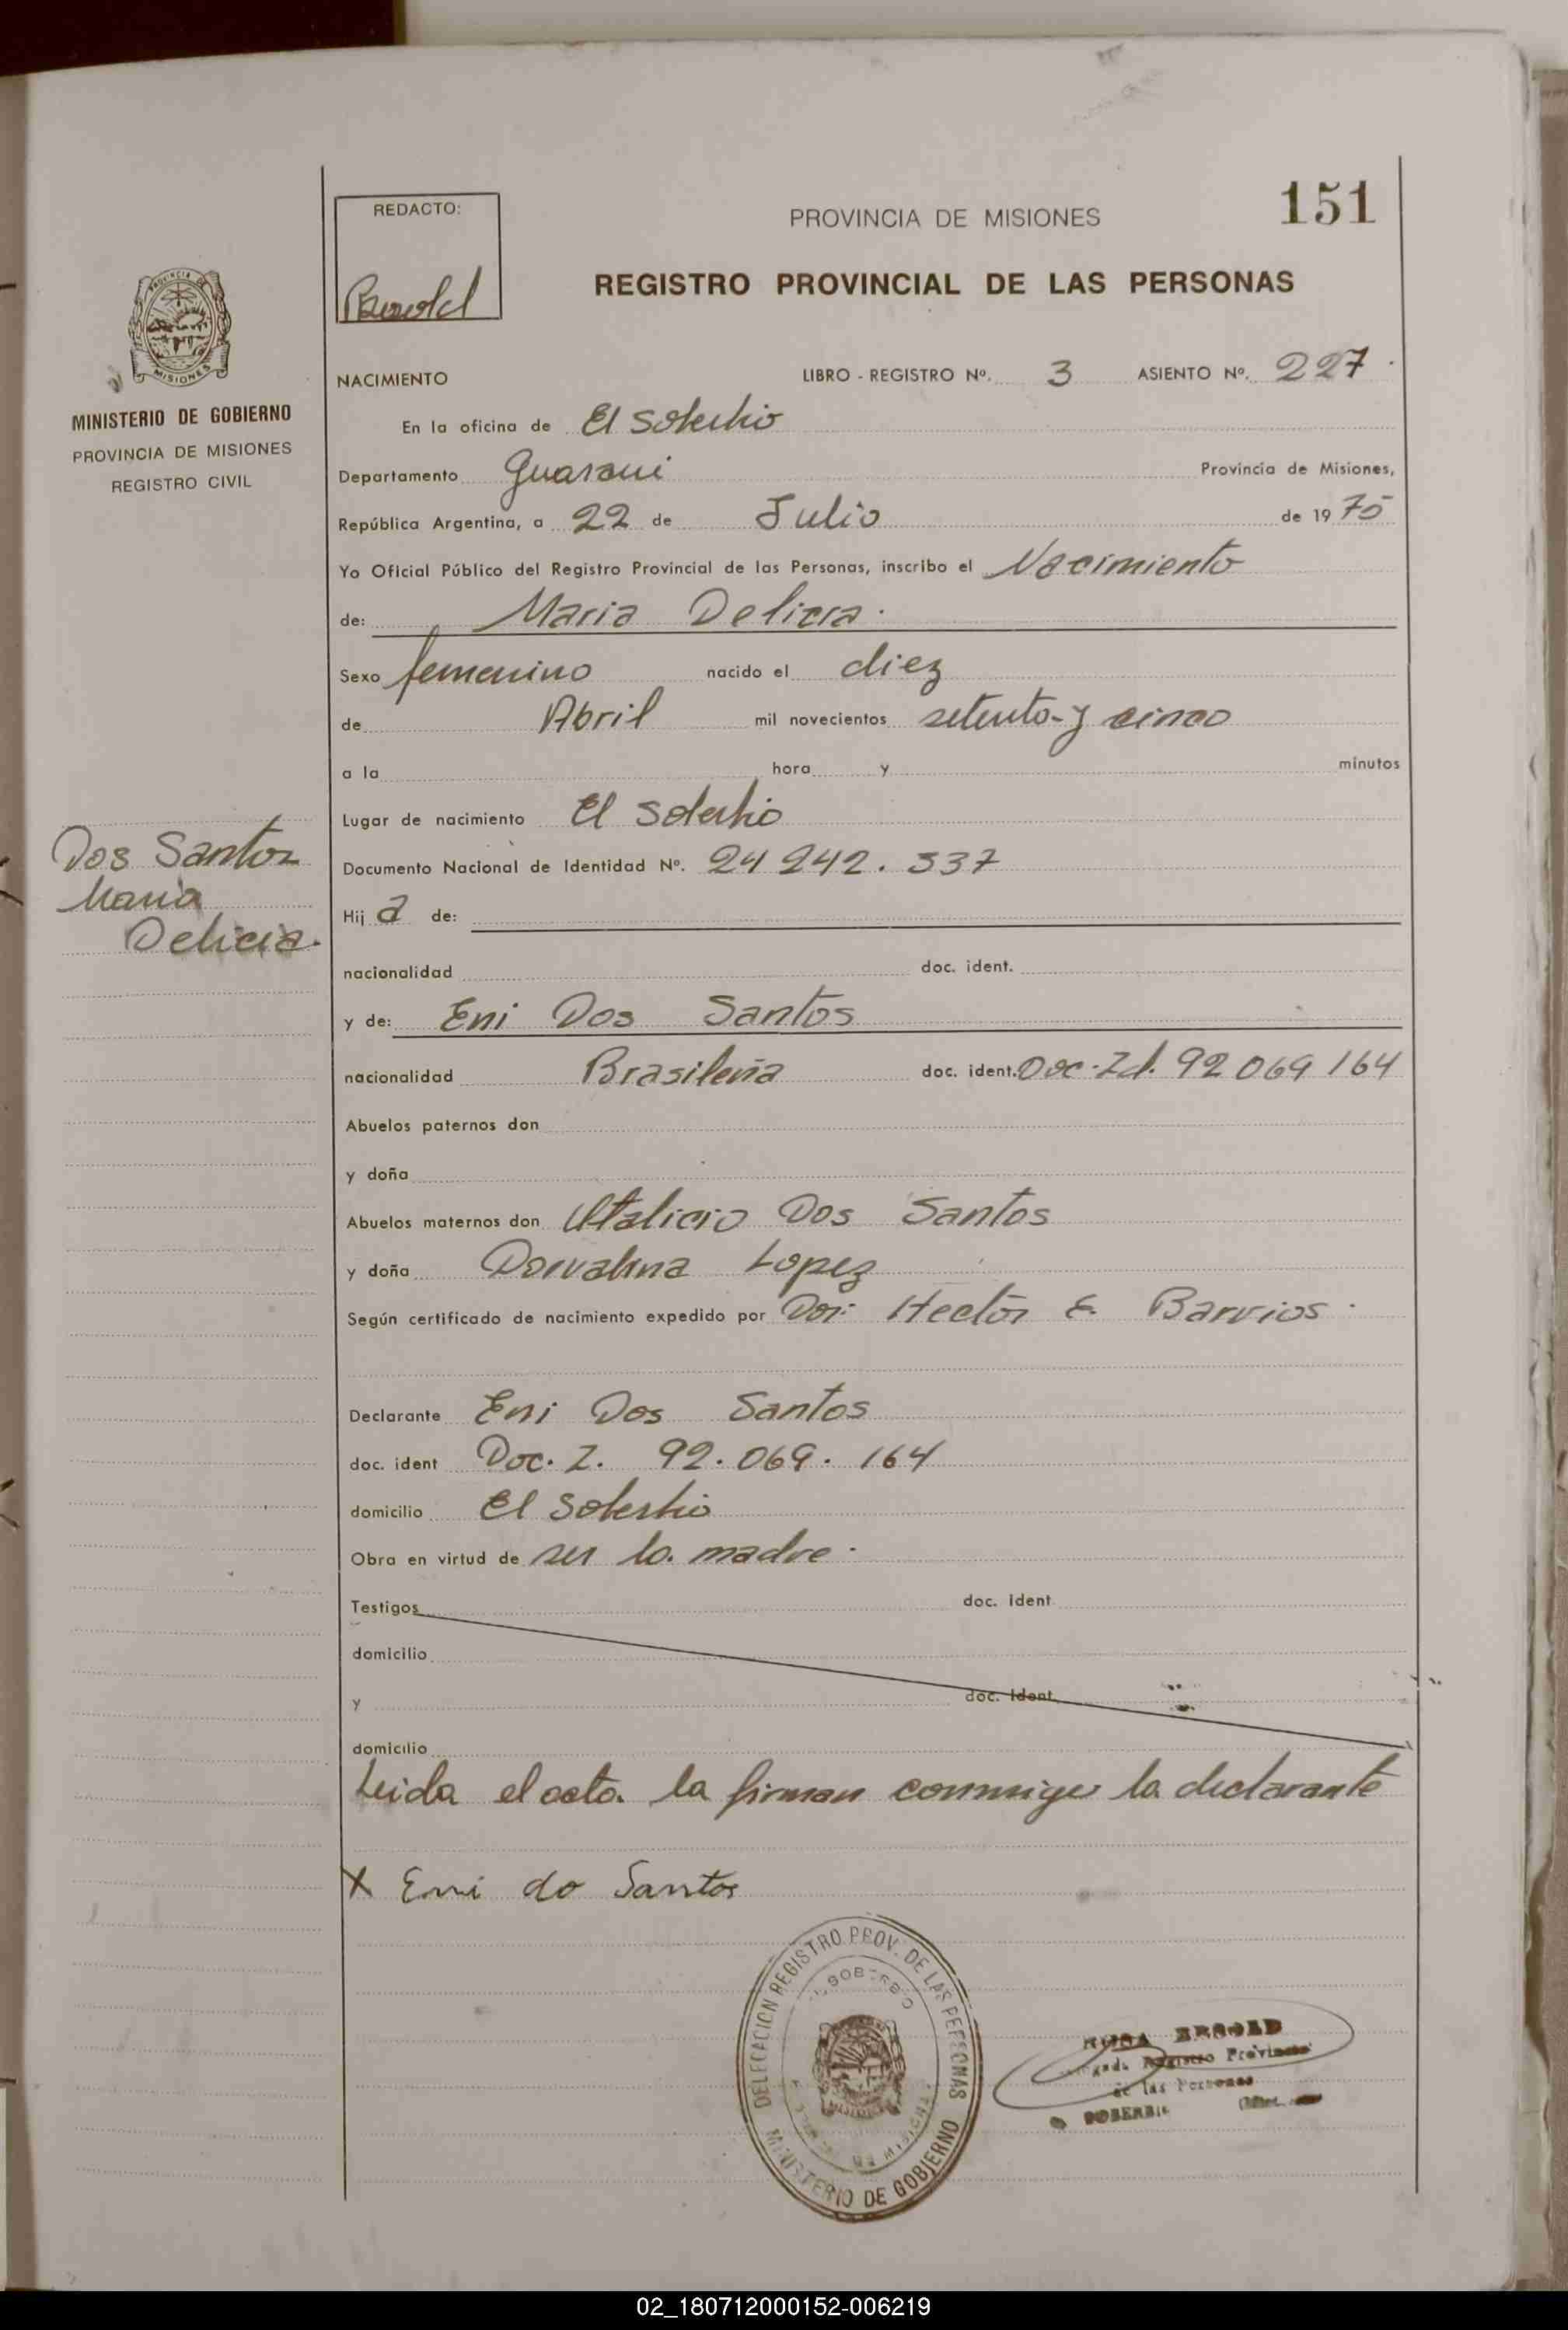 151
REDACTO:
PROVINCIA DE MISIONES
REGISTRO PROVINCIAL DE LAS PERSONAS
MINISTERIO DE GOBIERNO
PROVINCIA DE MISIONES
REGISTRO CIVIL
NACIMIENTO LIBRO - REGISTRO Nº. 3 ASIENTO Nº. 227
En la oficina de El Soberbio
Departamento Guarani Provincia de Misiones,
República Argentina, a 22 de Julio de 1975
Yo Oficial Público del Registro Provincial de las Personas, inscribo el Nacimiento
de: Maria Delicia.
Sexo femenino nacido el diez
de Abril mil novecientos setenta y cinco
a la hora y minutos
Lugar de nacimiento El Soberbio
Dos Santos
Maria
Delicia.
Documento Nacional de Identidad Nº. 24 242. 537
Hij a de:
nacionalidad doc. ident.
y de: Eni Dos Santos
nacionalidad Brasileña doc. ident. Doc. Id. 92 069 164
Abuelos paternos don
y doña
Abuelos maternos don Italicio Dos Santos
y doña Dorvalina Lopez
Según certificado de nacimiento expedido por Dor. Hector E. Barrios.
Declarante Eni Dos Santos
doc. ident Doc. I. 92. 069. 164
domicilio El Soberbio
Obra en virtud de ser la madre.
Testigos doc. ident
domicilio
y doc. ident
domicilio
Leida el acta la firman conmigo la declarante
X Eni do Santos
DELEGACION REGISTRO PROV. DE LAS PERSONAS
MINISTERIO DE GOBIERNO
Registro Provincial
de las Personas
SOBERBIO
02_180712000152-006219